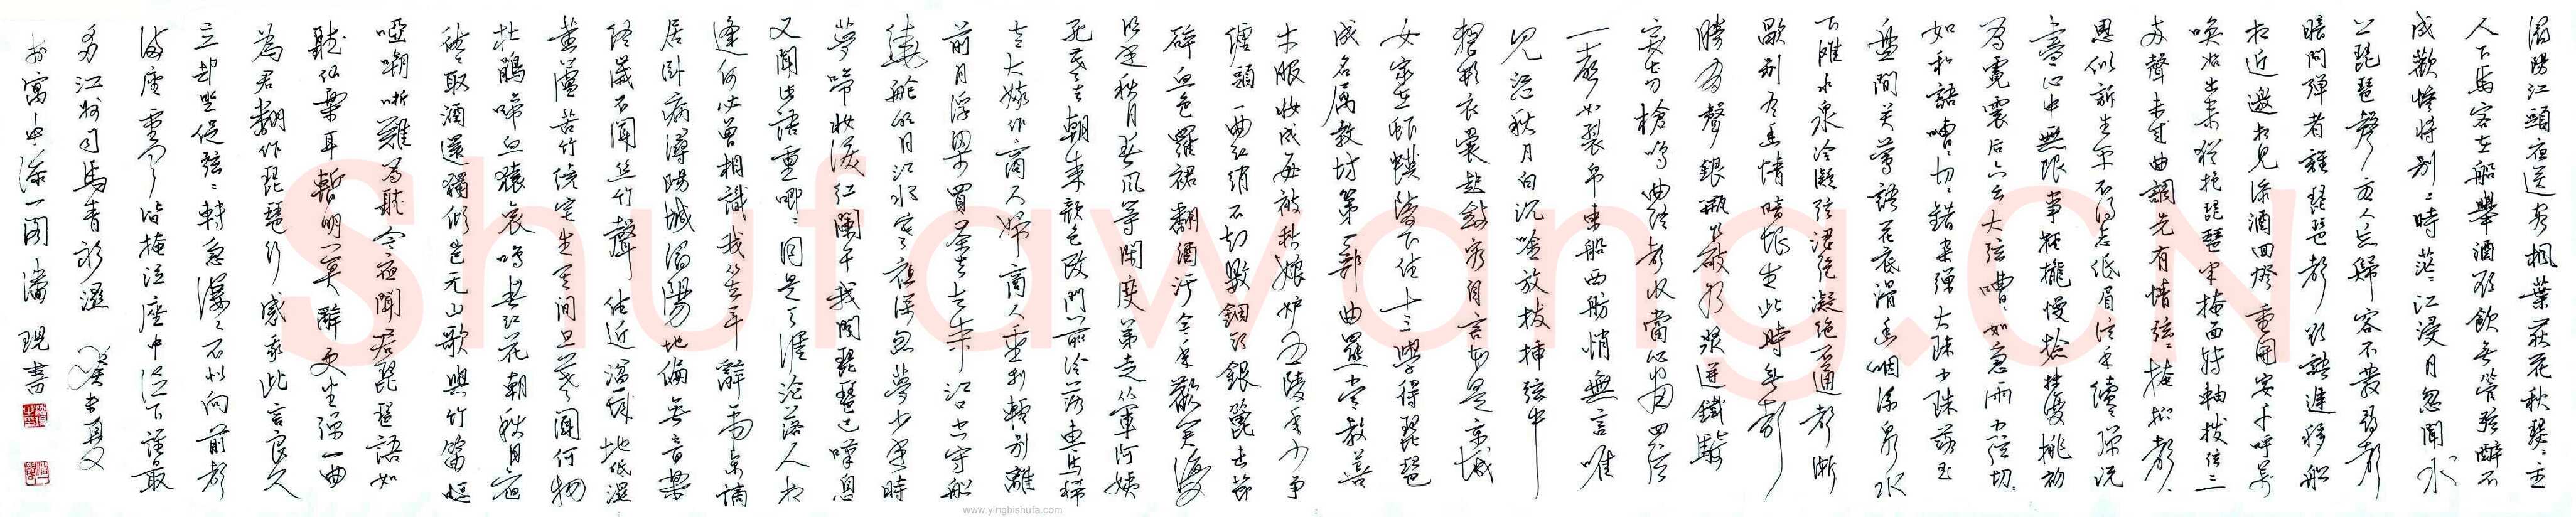 潯陽江頭夜送客楓葉荻花秋瑟瑟主
人下馬客在船舉酒欲飲無管弦醉不
成歡慘將別別時茫茫江浸月忽聞水
上琵琶聲主人忘歸客不發尋聲
暗問彈者誰琵琶聲停欲語遲移船
相近邀相見添酒回燈重開宴千呼萬
喚始出來猶抱琵琶半掩面轉軸撥弦三
兩聲未成曲調先有情弦弦掩抑聲聲
思似訴生平不得志低眉信手續續彈說
盡心中無限事輕攏慢撚抹復挑初
為霓裳后六幺大弦嘈嘈如急雨小弦切切
如私語嘈嘈切切錯雜彈大珠小珠落玉
盤間关鶯語花底滑幽咽流泉水
下灘水泉冷凝弦凝絕凝絕不通聲漸
歇別有幽情暗恨生此時無聲
勝有聲銀瓶乍破水漿迸鐵騎
突出刀槍鳴曲終收撥當心畫四弦
一聲如裂帛東船西舫悄無言唯
見江心秋月白沉吟放撥插弦中
整頓衣裳起斂容自言本是京城
女家在蝦蟆陵下住十三學得琵琶
成名属教坊第一部曲罷常教善
才服妝成每被秋娘妒五陵年少爭
纏頭一曲紅綃不知數鈿頭銀篦擊節
碎血色羅裙翻酒污今年歡笑復
明年秋月春風等閑度弟走從軍阿姨
死暮去朝來顏色改門前冷落車馬稀
老大嫁作商人婦商人重利輕別離
前月浮梁買茶去去來江口空守船
繞船明月江水寒夜深忽夢少年時
夢啼妝淚紅闌干我聞琵琶已嘆息
又聞此語重唧唧同是天涯淪落人相
逢何必曾相識我從去年辭帝京謫
居臥病潯陽城潯陽地僻無音樂
終歲不聞絲竹聲住近湓城地低濕
黃蘆苦竹繞宅生其間旦暮聞何物
杜鵑啼血猿哀鳴春江花朝秋月夜
往往取酒還獨傾豈无山歌與竹笛嘔
啞嘲哳難為聽今夜聞君琵琶語如
聽仙樂耳暫明莫辭更坐彈一曲
為君翻作琵琶行感我此言良久
立却坐促弦弦轉急淒淒不似向前聲
滿座重聞皆掩泣座中泣下誰最
多江州司馬青衫濕
於寓中添一閣潘現書
Shufawang.CN
www.yingbishufa.com